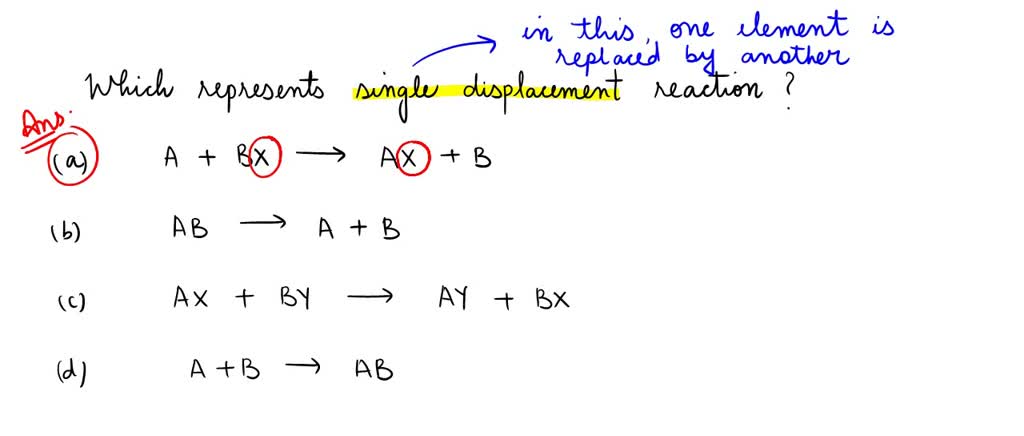 in this, one element is
replaced by another
Which represents single displacement reaction ?
Ans.
(a) A + BX → AX + B
(b) AB → A + B
(c) AX + BY → AY + BX
(d) A + B → AB